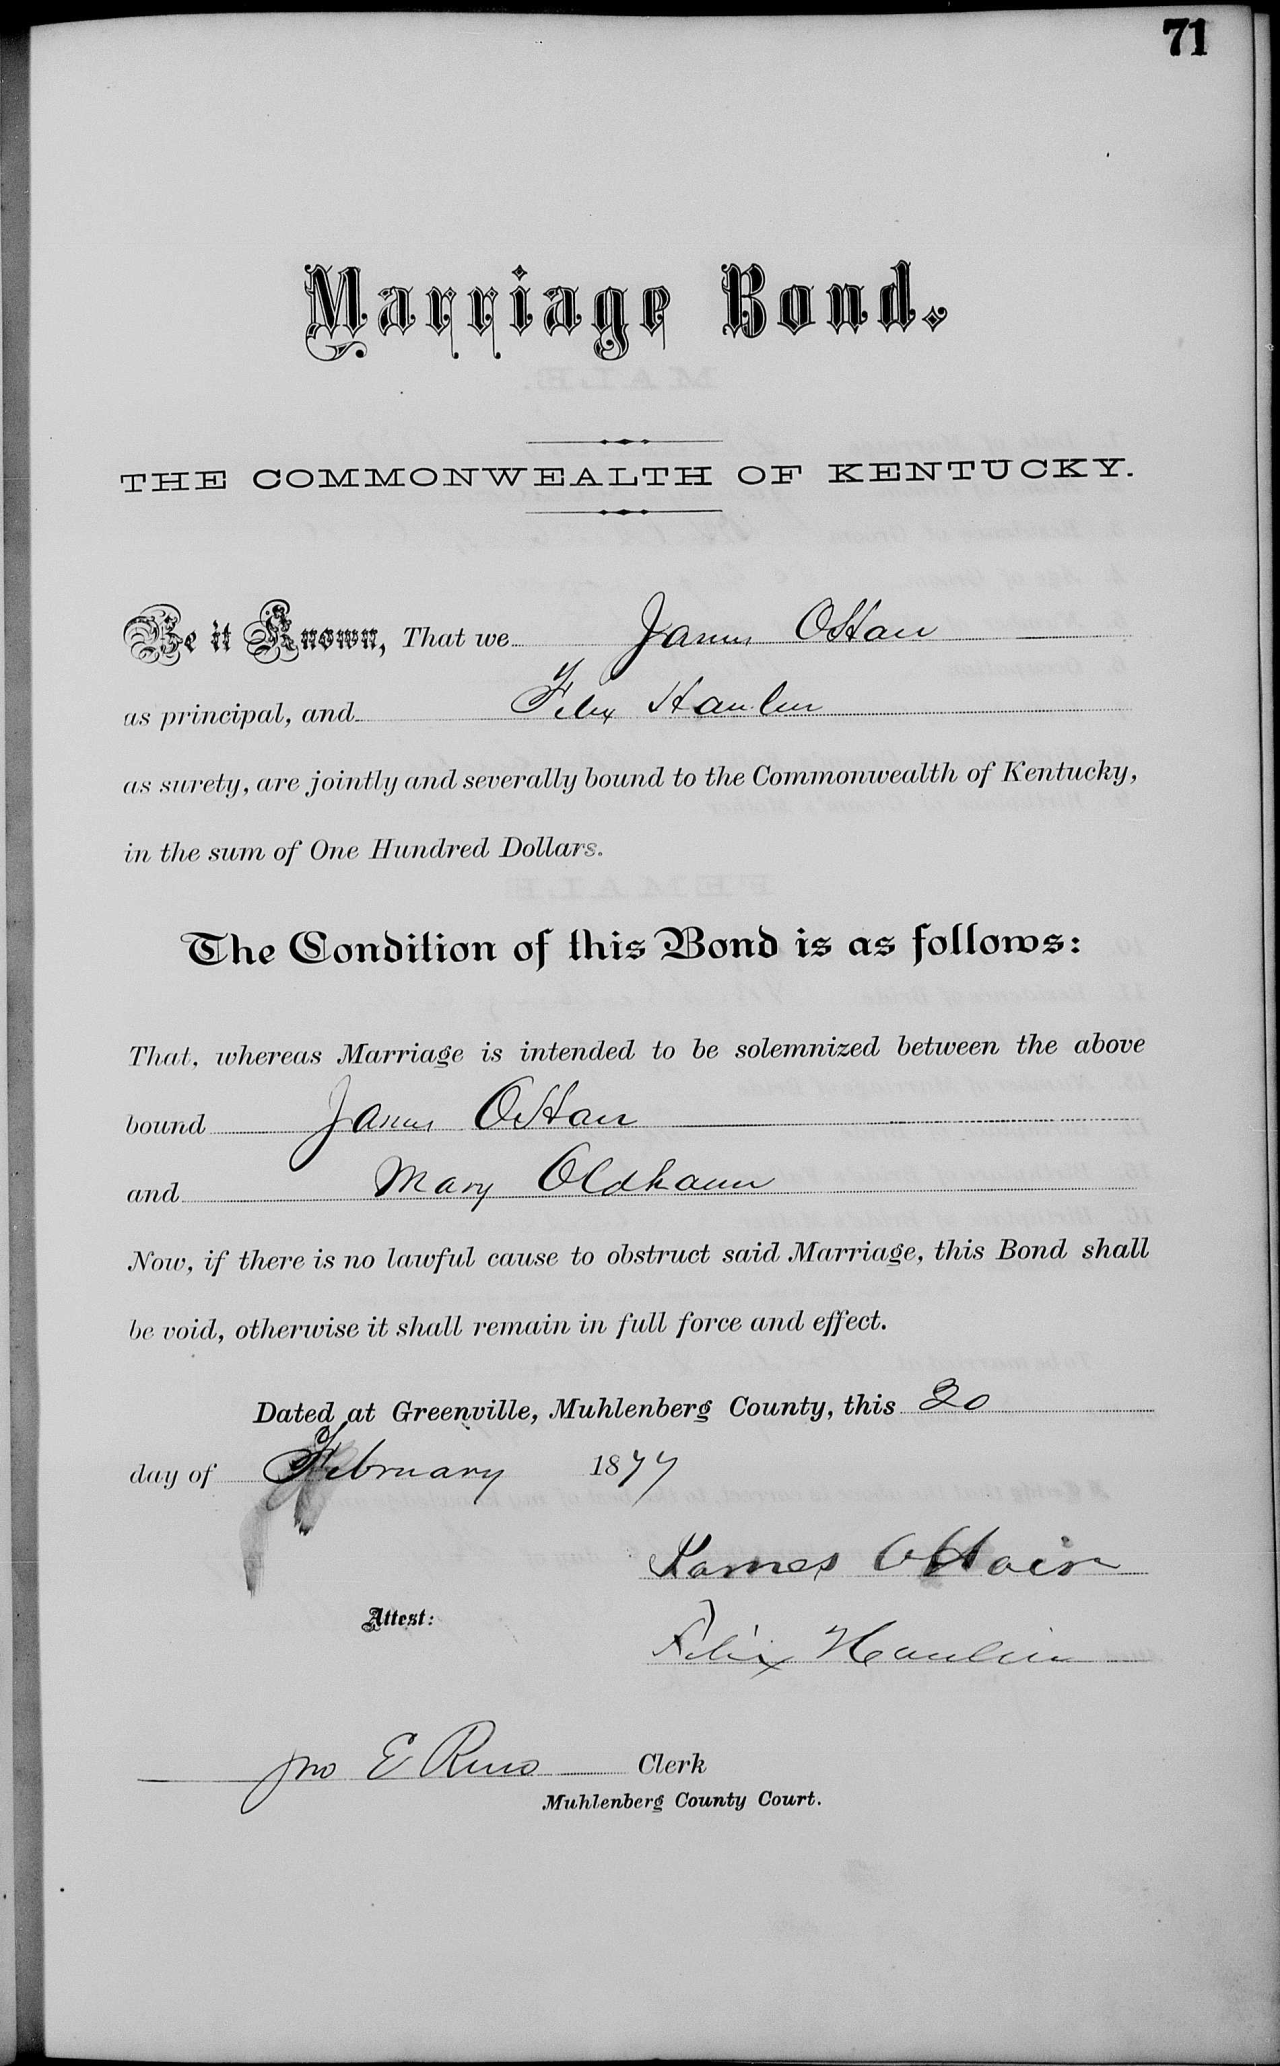 71
Marriage Bond.
THE COMMONWEALTH OF KENTUCKY.
Be it Known, That we James OHair
as principal, and Felix Hanlin
as surety, are jointly and severally bound to the Commonwealth of Kentucky,
in the sum of One Hundred Dollars.
The Condition of this Bond is as follows:
That, whereas Marriage is intended to be solemnized between the above
bound James OHair
and Mary Oldham
Now, if there is no lawful cause to obstruct said Marriage, this Bond shall
be void, otherwise it shall remain in full force and effect.
Dated at Greenville, Muhlenberg County, this 20
day of February 1877
James OHair
Attest:
Felix Hanlin
Jno E Reno Clerk
Muhlenberg County Court.